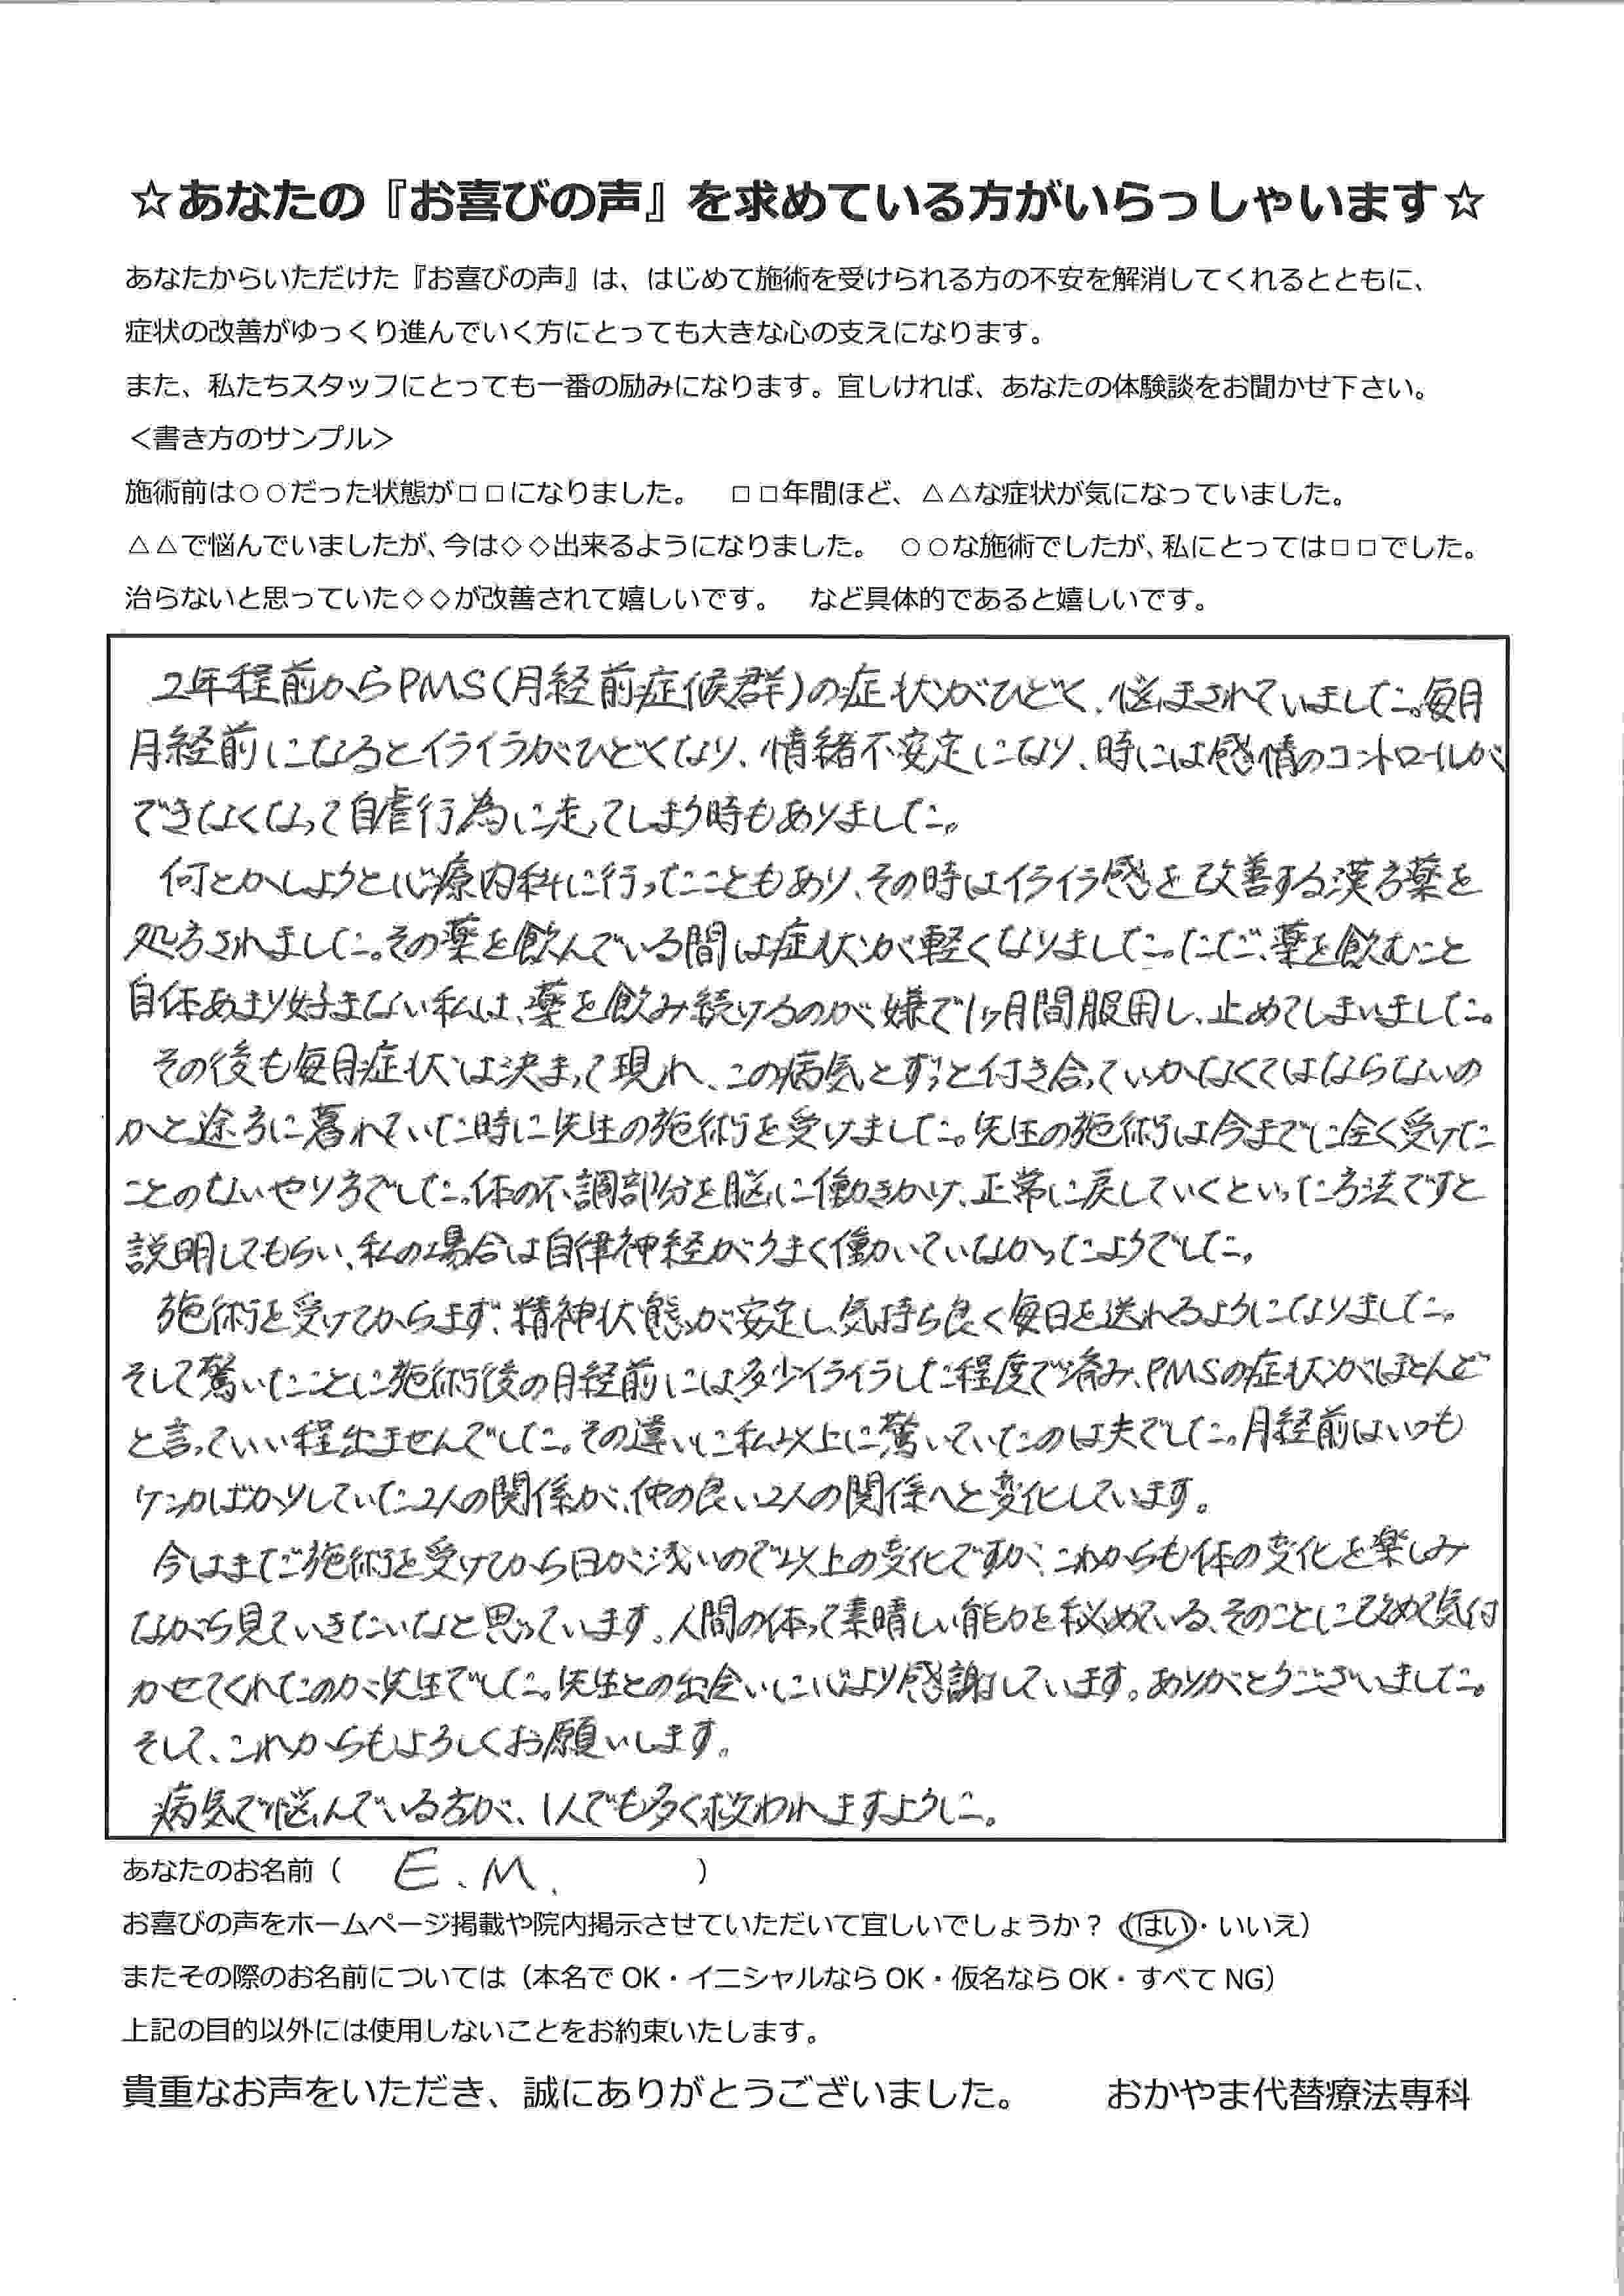 ☆あなたの『お喜びの声』を求めている方がいらっしゃいます☆
あなたからいただけた『お喜びの声』は、はじめて施術を受けられる方の不安を解消してくれるとともに、
症状の改善がゆっくり進んでいく方にとっても大きな心の支えになります。
また、私たちスタッフにとっても一番の励みになります。宜しければ、あなたの体験談をお聞かせ下さい。
＜書き方のサンプル＞
施術前は○○だった状態が□□になりました。　□□年間ほど、△△な症状が気になっていました。
△△で悩んでいましたが、今は◇◇出来るようになりました。　○○な施術でしたが、私にとっては□□でした。
治らないと思っていた◇◇が改善されて嬉しいです。　など具体的であると嬉しいです。
2年程前からPMS(月経前症候群)の症状がひどく、悩まされていました。毎月
月経前になるとイライラがひどくなり、情緒不安定になり、時には感情のコントロールが
できなくなって自虐行為に走ってしまう時もありました。
何とかしようと心療内科に行ったこともあり、その時はイライラ感を改善する漢方薬を
処方されました。その薬を飲んでいる間は症状が軽くなりました。ただ、薬を飲むこと
自体あまり好まない私は、薬を飲み続けるのが嫌で1ヶ月間服用し、止めてしまいました。
その後も毎月症状は決まって現れ、この病気とずっと付き合っていかなくてはならないの
かと途方に暮れていた時に先生の施術を受けました。先生の施術は今までに全く受けた
ことのないやり方でした。体の不調部分を脳に働きかけ、正常に戻していくといった方法ですと
説明してもらい、私の場合は自律神経がうまく働いていなかったようでした。
施術を受けてからまず、精神状態が安定し、気持ち良く毎日を送れるようになりました。
そして驚いたことに施術後の月経前には多少イライラした程度で済み、PMSの症状がほとんど
と言っていい程出ませんでした。その違いに私以上に驚いていたのは夫でした。月経前はいつも
ケンカばかりしていた2人の関係が、仲の良い2人の関係へと変化しています。
今はまだ施術を受けてから日が浅いので以上の変化ですが、これからも体の変化を楽しみ
ながら見ていきたいなと思っています。人間の体って素晴しい能力を秘めている、そのことに改めて気付
かせてくれたのが先生でした。先生との出会いに心より感謝しています。ありがとうございました。
そして、これからもよろしくお願いします。
病気で悩んでいる方が、1人でも多く救われますように。
あなたのお名前（　E.M.　）
お喜びの声をホームページ掲載や院内掲示させていただいて宜しいでしょうか？（はい・いいえ）
またその際のお名前については（本名でOK・イニシャルならOK・仮名ならOK・すべてNG）
上記の目的以外には使用しないことをお約束いたします。
貴重なお声をいただき、誠にありがとうございました。　おかやま代替療法専科